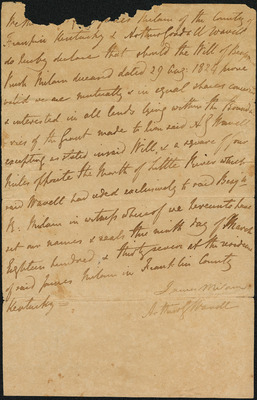 We the James Milam of the County of
Franklin Kentucky & Arthur Goodall Wavell
do hereby declare that should the Will of Benj
Milam deceased dated 29 Aug. 182 prove
valid we are mutually & in equal shares
& interested in all lands lying within the bound
-ries of the Grant made to him said A G Wavell
excepting as stated in said Will, a square of four
Miles opposite the Mouth of Little River which
said Wavell had ceded exclusively to said Benjn
R. Milam in witness whereof we hereunto have
set our names & seals this ninth day of March
Eighteen hundred, & thirty seven at the residence
of said James Milam in Franklin County
Kentucky =
James Milam
Arthur G Wavell